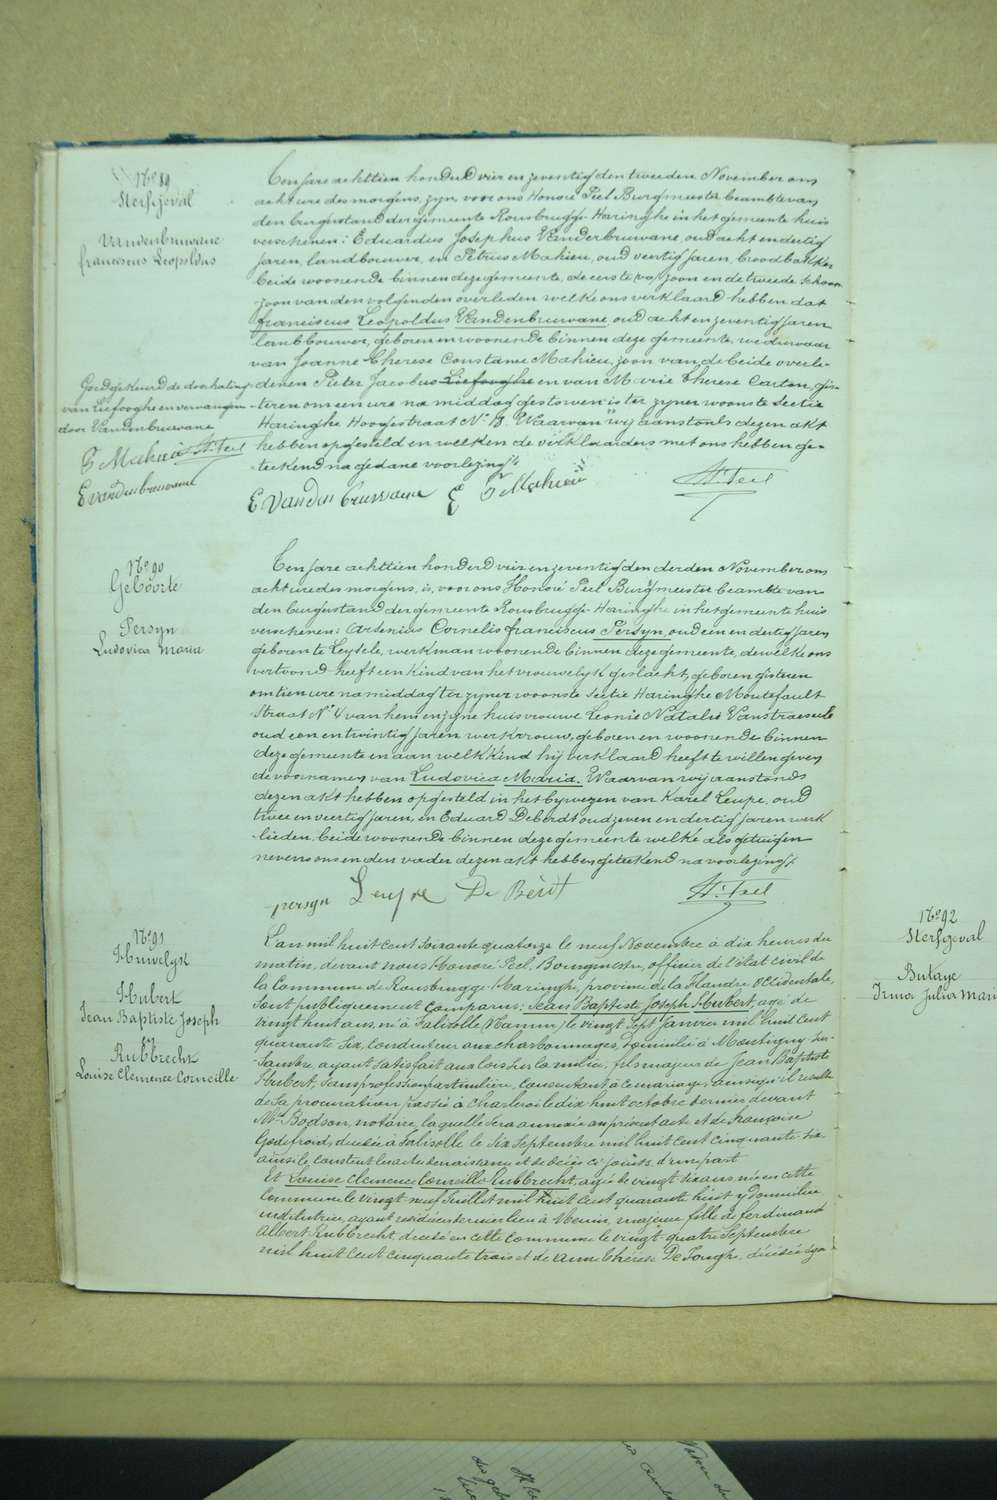 No 89
Sterfgeval
Vandenbruwane
franciscus Leopoldus
Ten jare achttien honderd vier en zeventig den tweeden November om
acht ure des morgens, zyn, voor ons Honoré Peel Burgmeester beambte van
den burgerstand der gemeente Rousbrugge-Haringhe in het gemeente huis
verschenen: Eduardus Josephus Vandenbruwane, oud acht en dertig
jaren, landbouwer, en Petrus Mahieu, oud veertig jaren, broodbakker
beide woonende binnen deze gemeente, de eerste zoon en de tweede schoon
zoon van den volgenden overleden welke ons verklaard hebben dat
franciscus Leopoldus Vandenbruwane oud acht en zeventig jaren
landbouwer, geboren en woonende binnen deze gemeente, weduwaar
van Joanne Therese Constance Mahieu, zoon van de beide overle-
denen Pieter Jacobus Liefooghe en van Marie Therese Carton, gis-
teren om een ure na middag gestorven is ter zyner woonste sectie
Haringhe Hoogestraat No 18. Waarvan wij aanstonds dezen akt
hebben opgesteld en welken de verklaarders met ons hebben ge-
teekend na gedane voorlezing
Goedgekeurd de doorhaling
van Liefooghe en vervangen
door Vandenbruwane
P Mahieu H. Peel
E vandenbruwane
E Vandenbruwane P Mahieu H. Peel
No 90
Geboorte
Persyn
Ludovica Maria
Ten jare achttien honderd vier en zeventig den derden November om
acht ure des morgens, is, voor ons Honoré Peel Burgmeester beambte van
den burgerstand der gemeente Rousbrugge-Haringhe in het gemeente huis
verschenen: Arsenius Cornelis franciscus Persyn, oud een en dertig jaren
geboren te Leysele, werkman woonende binnen deze gemeente, dewelke ons
vertoond heeft een kind van het vrouwelyk geslacht, geboren gisteren
om tien ure na middag ter zyner woonste sectie Haringhe Moutefault
Straat No 4 van hem en zyne huisvrouwe Leonie Natalie Vanstraeseele
oud een en twintig jaren werkvrouw, geboren en woonende binnen
deze gemeente en aan welk kind hij verklaard heeft te willen geven
de voornamen van Ludovica Maria. Waarvan wij aanstonds
dezen akt hebben opgesteld in het bywezen van Karel Leupe, oud
twee en veertig jaren, en Eduard Deberdt oud zeven en dertig jaren werk
lieden beide woonende binnen deze gemeente welke als getuigen
nevens ons en den vader dezen akt hebben geteekend na voorlezing
persyn Leupe De Berdt H. Peel
No 91
Huwelyk
Hubert
Jean Baptiste Joseph
en
Rubbrecht
Louise Clemence Corneille
L'an mil huit cent soixante quatorze le neuf Novembre à dix heures du
matin, devant nous Honoré Peel, Bourgmestre, officier de l'état civil de
la Commune de Rousbrugge-Haringhe, province de la Flandre Occidentale,
sont publiquement Comparus: Jean Baptiste Joseph Hubert, agé de
vingt huit ans, né à Falisolle (Namur) le vingt sept Janvier mil huit cent
quarante six, Conducteur aux charbonnages, domicilié à Montigny-sur-
Sambre, ayant satisfait aux lois sur la milice, fils majeur de Jean Baptiste
Hubert, sans profession particulière, consentant à ce mariage, ainsi qu'il resulte
de sa procuration passée à Charleroi le dix huit octobre dernier devant
Mr Bodson, notaire, laquelle sera annexée au présent acte et de françoise
Godefroid, decédée à Falisolle le six septembre mil huit cent cinquante six
ainsi le constent les actes de naissance et de décès ci-joints d'une part
Et Louise Clemence Corneille Rubbrecht, agée de vingt six ans, née en cette
Commune le vingt neuf Juillet mil huit cent quarante huit y domiciliée
institutrice, ayant résidé en dernier lieu à Menin, majeure, fille de ferdinand
Albert Rubbrecht, decedé en cette commune le vingt-quatre Septembre
mil huit cent cinquante trois et de Anne Thérese De Jonghe, décédée éga-
No 92
Sterfgeval
Butaye
Irma Julia Mari